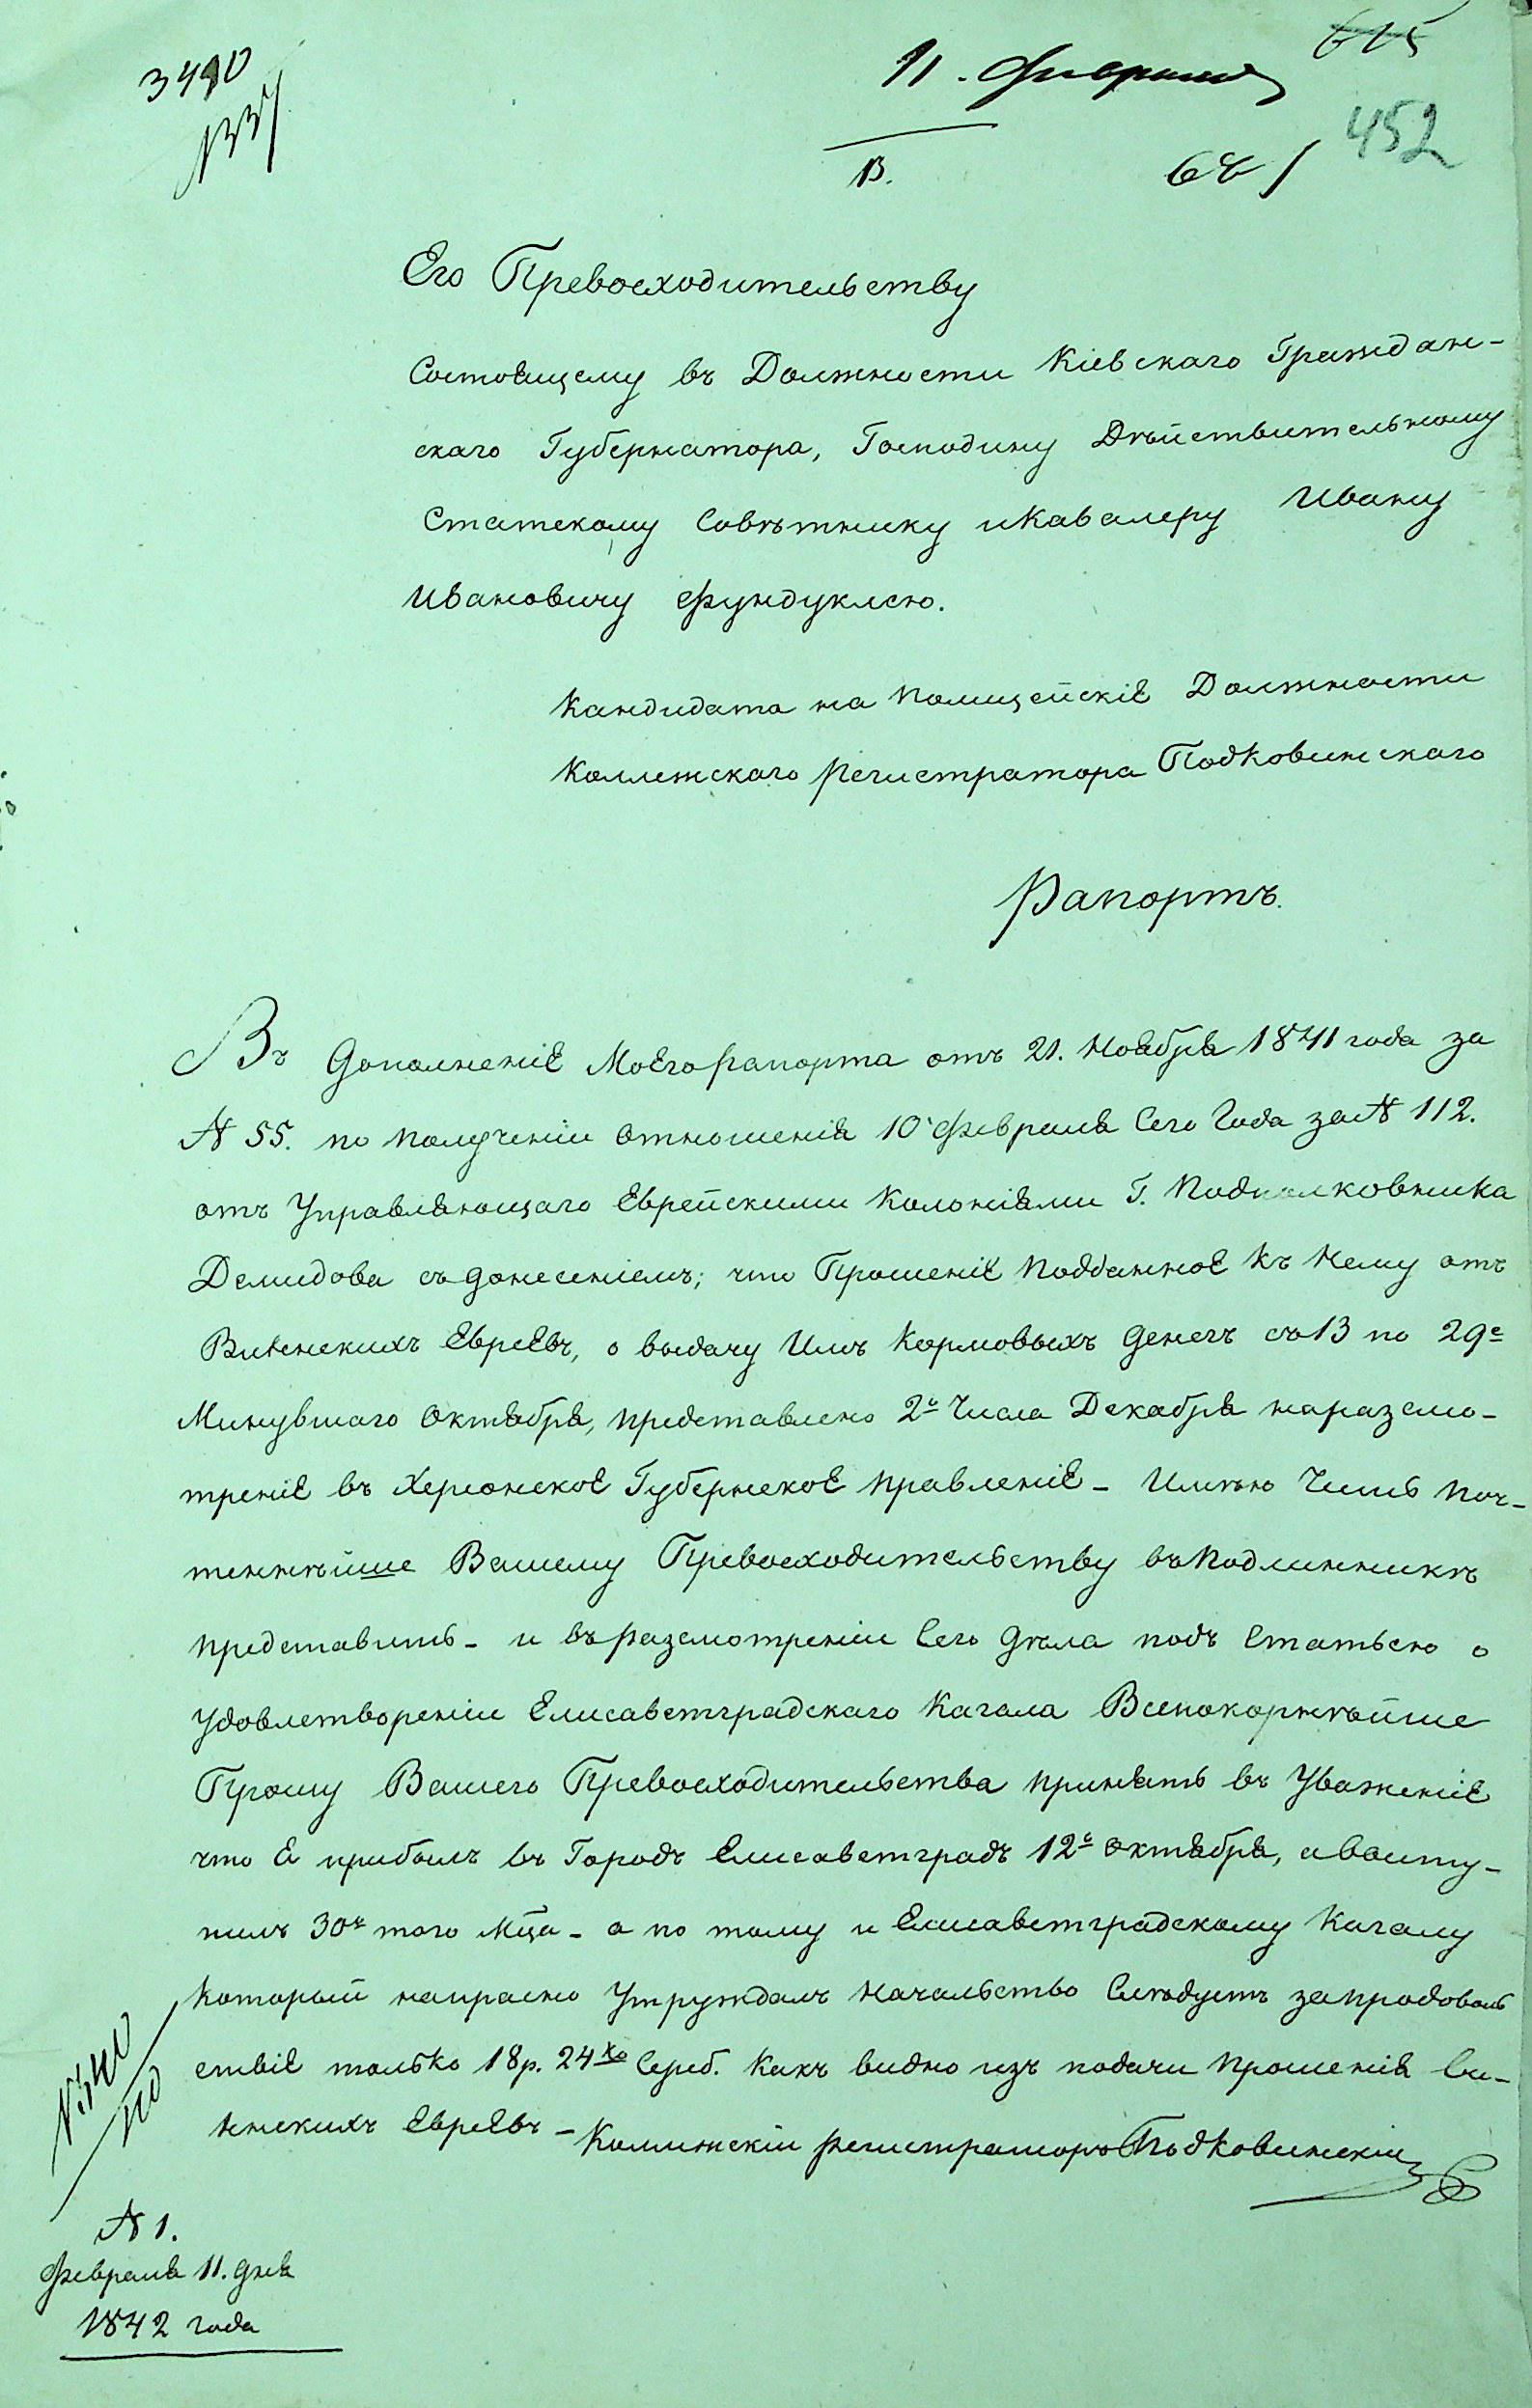 3490
11. Февраля
615
В.
681
452
Его Превосходительству
Состоящему въ Должности Кіевскаго Граждан-
скаго Губернатора, Господину Дѣйствительному
Статскому Совѣтнику и Кавалеру Ивану
Ивановичу Фундуклею.
Кандидата на Полицейскіе Должности
Коллежскаго Регистратора Подковинскаго
Рапортъ.
Въ Дополненіе Моего Рапорта отъ 21. Ноября 1841 года за
№ 55. по Полученіи Отношенія 10 Февраля Сего Года за № 112.
отъ Управляющаго Еврейскими Колоніями Г. Подполковника
Демидова съ донесеніемъ; что Прошеніе Подданное Къ Нему отъ
Евреевъ, о выдачу Имъ Кормовыхъ Денегъ съ 13 по 29е
Минувшаго Октября, представлено 2е Числа Декабря на разсмо-
треніе въ Херсонское Губернское Правленіе - Имѣю Честь Поч-
теннѣйше Вашему Превосходительству въ Подлинникѣ
Представить - и въ Разсмотреніи Сего Дѣла подъ Статьею о
Удовлетвореніи Елисаветградскаго Кагала Всепокорнѣйше
Прошу Вашего Превосходительства принять въ Уваженіе
что Я прибылъ въ Городъ Елисаветградъ 12е Октября, а высту-
пилъ 30е того Мца - а по тому и Елисаветградскому Кагалу
Который напрасно Утруждалъ Начальство Слѣдуетъ за продоволь
ствіе только 18 р. 24 ко Сереб. Какъ видно изъ подачи Прошенія Ви-
нскихъ Евреевъ - Коллежскій Регистраторъ Подковинскій
№ 1.
Февраля 11. дня
1842 года